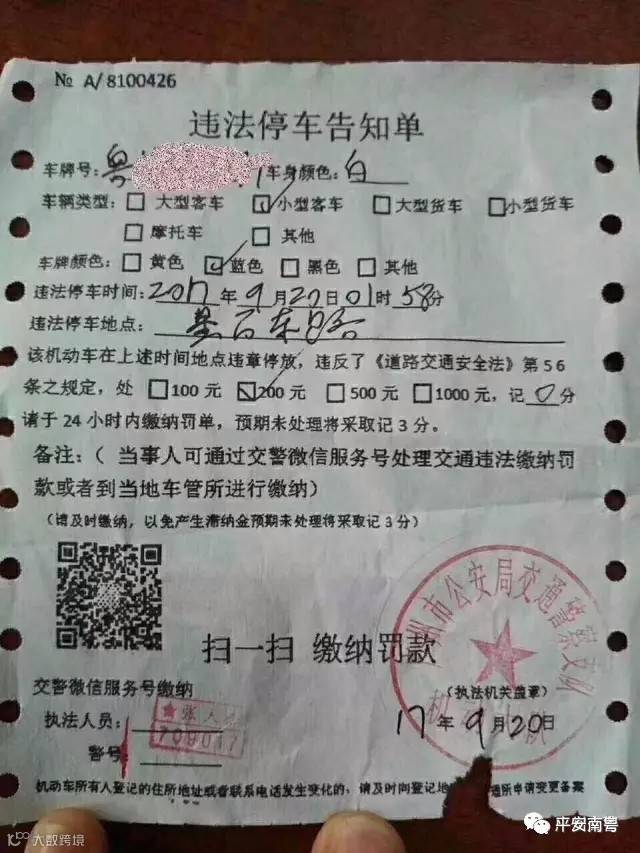 № A/8100426
违法停车告知单
车牌号：粤 车身颜色：白
车辆类型：□ 大型客车 ☑ 小型客车 □ 大型货车 □ 小型货车
□ 摩托车 □ 其他
车牌颜色：□ 黄色 ☑ 蓝色 □ 黑色 □ 其他
违法停车时间：2017年9月20日01时58分
违法停车地点：
该机动车在上述时间地点违章停放，违反了《道路交通安全法》第56
条之规定，处 □100元 ☑200元 □500元 □1000元，记0分
请于24小时内缴纳罚单，预期未处理将采取记3分。
备注：（ 当事人可通过交警微信服务号处理交通违法缴纳罚
款或者到当地车管所进行缴纳）
（请及时缴纳，以免产生滞纳金预期未处理将采取记3分）
州市公安局交通警察支队
扫一扫 缴纳罚款
交警微信服务号缴纳
（执法机关盖章）
执法人员：
警号：
17年9月20日
机动车所有人登记的住所地址或者联系电话发生变化的，请及时登记地 通所申请变更备案
大数跨境
平安南粤